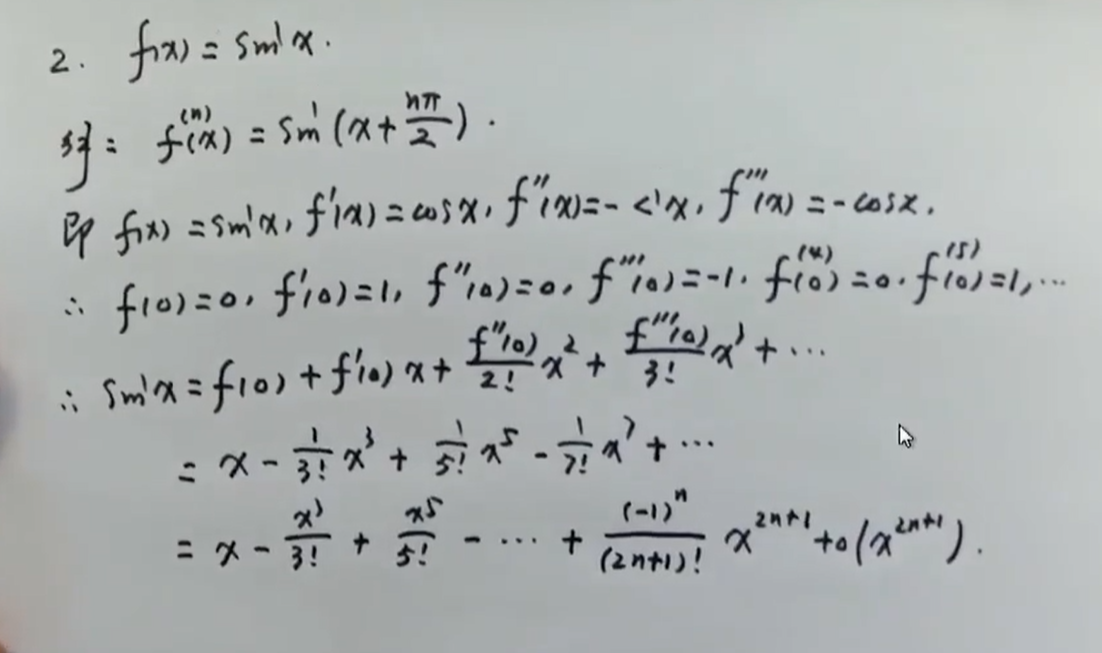 2. f(x) = sin x.
解: f^{(n)}(x) = sin (x + \frac{nπ}{2}).
即 f(x) = sin x, f'(x) = cos x, f''(x) = - sin x, f'''(x) = - cos x.
∴ f(0) = 0, f'(0) = 1, f''(0) = 0, f'''(0) = -1. f^{(4)}(0) = 0. f^{(5)}(0) = 1, ...
∴ sin x = f(0) + f'(0) x + \frac{f''(0)}{2!} x^2 + \frac{f'''(0)}{3!} x^3 + ...
= x - \frac{1}{3!} x^3 + \frac{1}{5!} x^5 - \frac{1}{7!} x^7 + ...
= x - \frac{x^3}{3!} + \frac{x^5}{5!} - ... + \frac{(-1)^n}{(2n+1)!} x^{2n+1} + o(x^{2n+1}).